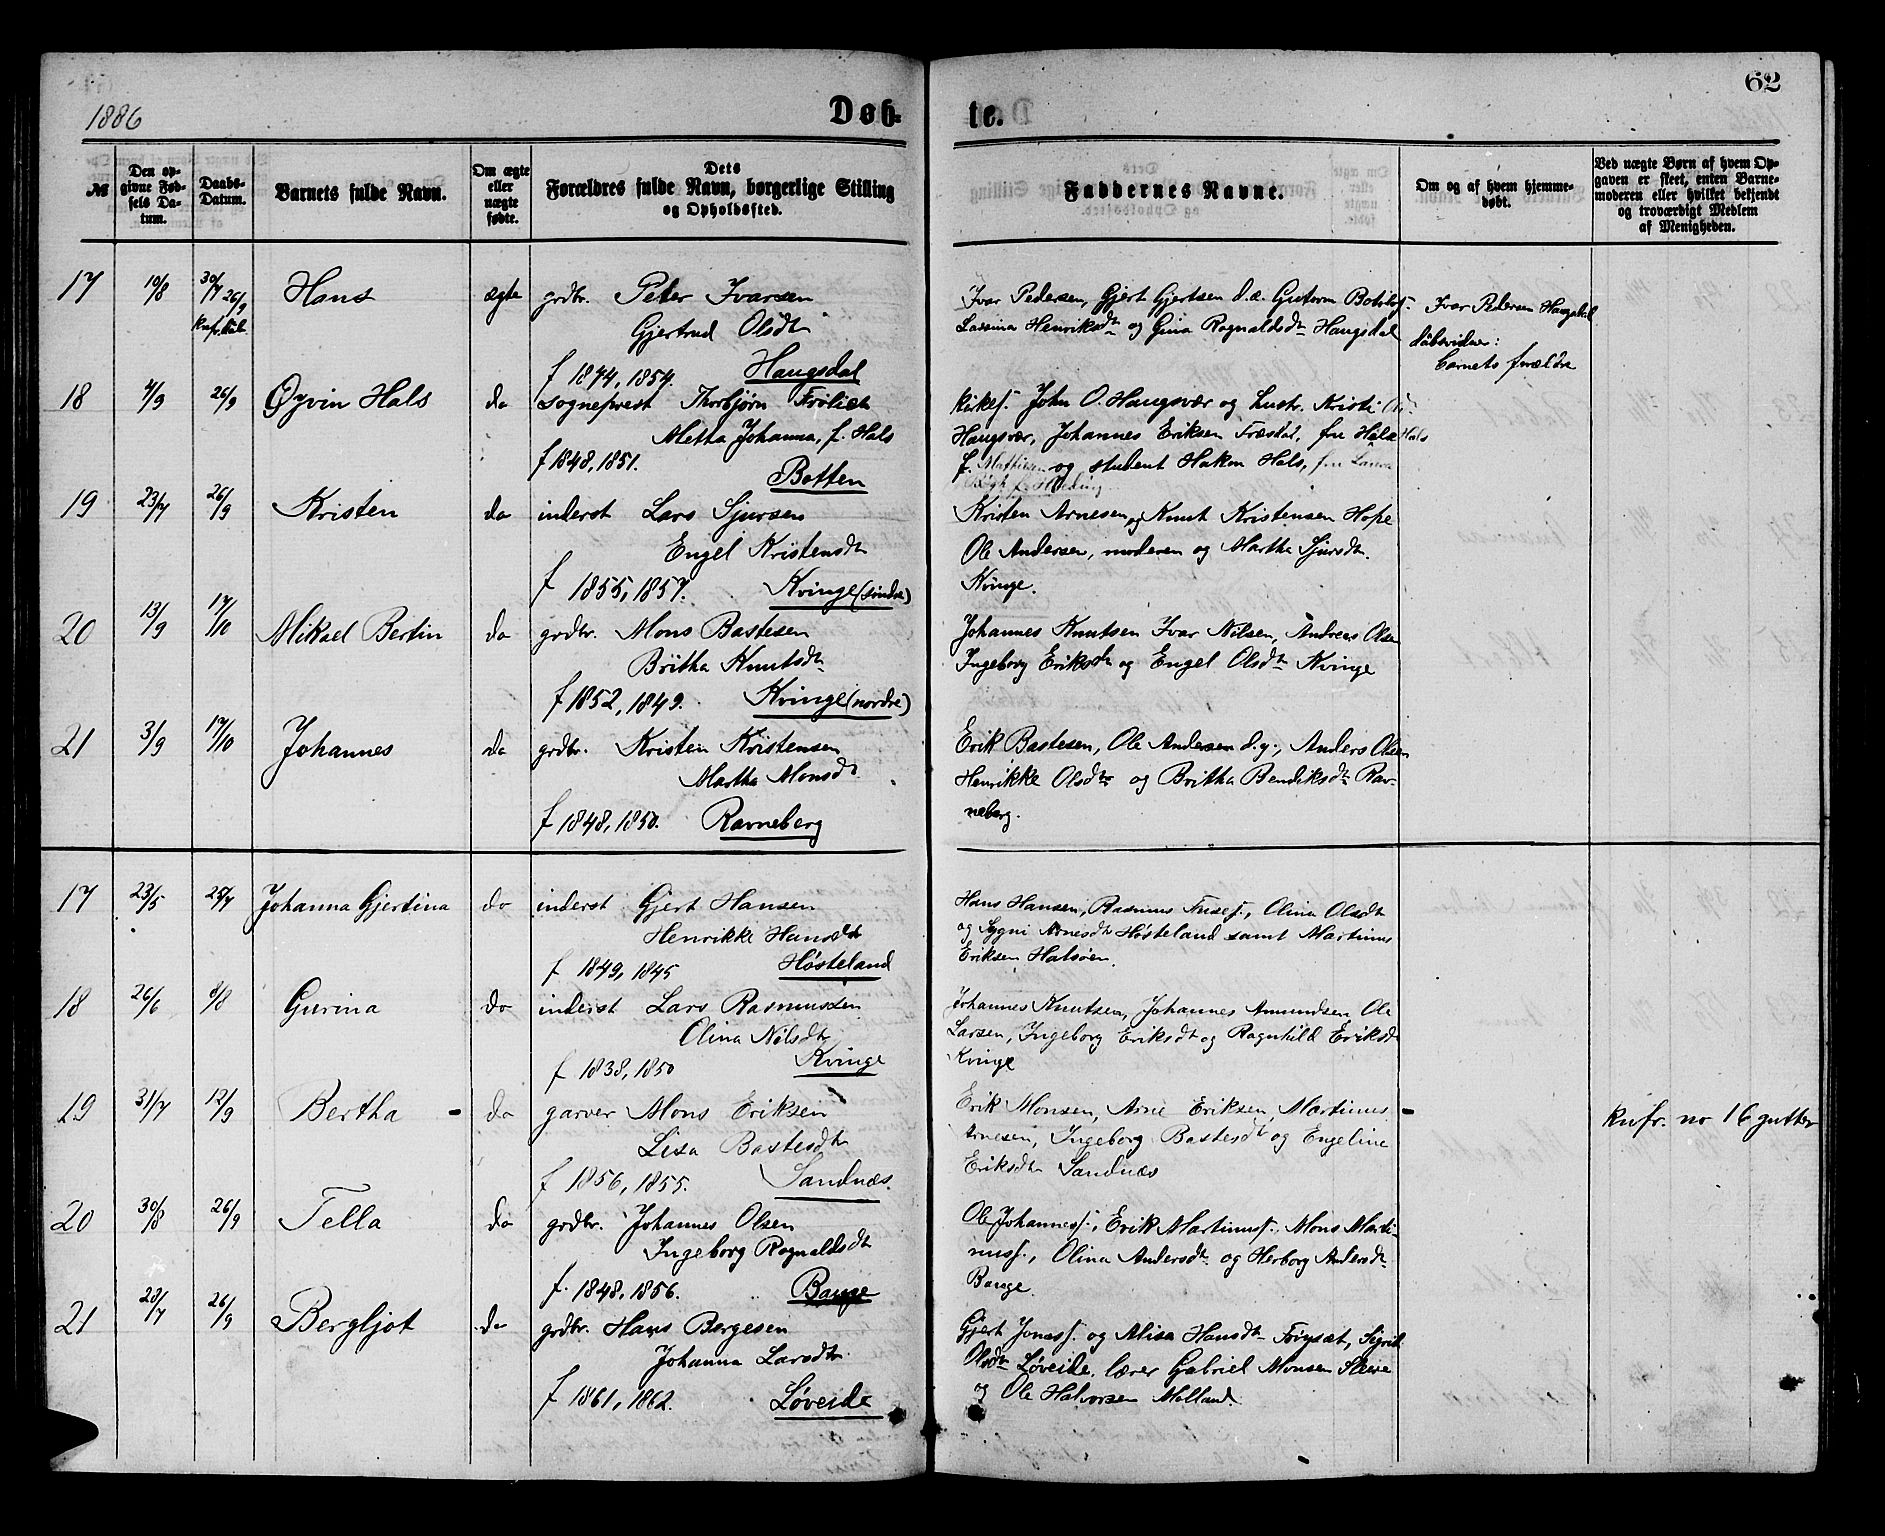 62
1886 Døb- te.
№
Den op-
givne Fød-
sels Da-
tum.
Daabs-
Datum.
Barnets fulde Navn.
Om ægte
eller
uægte
fødte.
Dets
Forældres fulde Navn, borgerlige Stilling
og Opholdssted.
Faddernes Navne.
Om og af hvem hjemme-
døbt.
Ved uægte Børn af hvem Op-
gaven er skeet, enten Barne-
moderen eller hvilket bekjendt
og troværdigt Medlem
af Menigheden.
17 10/8 26/9 Hans ægte grdbr. Peter Ivarsen
Gjertrud Olsdtr
f 1844, 1854. Haugsdal
Ivar Pedersen, Gjert Gjertsen d.æ. Guttorm Botolfs.
Lassina Henriksdtr og Gina Ragnaldsdtr Haugsdal
Ivar Pedersen Haugsdal
dåbsvidner:
barnets forældre
18 4/9 26/9 Øyvin Hals do sogneprest Thorbjørn Frölich
Metha Johanna, f. Hals
f 1848, 1851.
Botten
kirkes. John O. Haugsvær og hustr. Kristi
Haugsvær, Johannes Eriksen Træsdal, fru Hals
f. og student Hakon Hals, fru Laura
19 23/7 26/9 Kristen do inderst Lars Sjursen
Engel Kristensdtr
f 1855, 1857. Kvinge (søndre)
Kristen Arnesen og Knut Kristensen Hope
Ole Andersen, moderen og Martha Sjursdtr.
Kvinge.
20 13/9 17/10 Mikael Bertin do grdbr. Mons Bastesen
Britha Knutsdtr
f 1852, 1849. Kvinge (nordre)
Johannes Knutsen Ivar Nilsen, Andreas Olsen
Ingeborg Eriksdtr og Engel Olsdtr Kvinge
21 3/9 17/10 Johannes do grdbr. Kristen Kristensen
Martha Monsdtr
f 1848, 1850. Ravneberg
Erik Bastesen, Ole Andersen d.y., Anders Olsen
Henrikke Olsdtr og Britha Bendiksdtr Rav-
neberg.
17 23/5 25/7 Johanna Gjertina do inderst Gjert Hansen
Henrikke Hansdtr
f 1849, 1845 Høsteland
Hans Hansen, Rasmus Trules., Olina Olsdtr
og Sygni Arnesdtr Høsteland samt Martinus
Eriksen Halsøen.
18 26/6 8/8 Gurina do inderst Lars Rasmussen
Olina Nilsdtr
f 1838, 1850 Kvinge
Johannes Knutsen, Johannes Amundsen Ole
Larsen, Ingeborg Eriksdtr og Ragnhild Eriksdtr
Kvinge
19 31/7 12/9 Bertha - do garver Mons Eriksen
Lisa Bastesdtr
f 1856, 1855. Sandnæs.
Erik Monsen, Arne Eriksen, Martinus
Arnesen, Ingeborg Bastesdtr og Engeline
Eriksdtr Sandnæs
knfr. no 16 gutter
20 30/8 26/9 Tella do grdbr. Johannes Olsen
Ingeborg Ragnaldsdtr
f. 1848, 1856. Bauge
Ole Johanness., Erik Martinuss. Mons Marti-
nuss., Olina Andersdtr og Herborg Andersdtr
Bauge.
21 28/7 26/9 Bergljot do grdbr. Hans Børgesen
Johanna Larsdtr
f 1861, 1862. Løveide
Gjert Joness. og Alisa Hansdtr Frøysæt, Sigrid
Olsdtr Løveide, lærer Gabriel Monsen Steire
og Ole Halvorsen Molland.